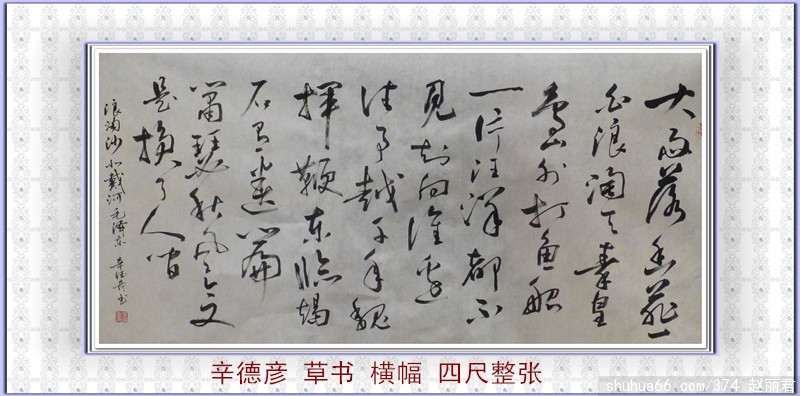 大雨落幽燕
白浪滔天秦皇
島外打魚船
一片汪洋都不
見知向誰邊
往事越千年魏
揮鞭東臨碣
石有遺篇
蕭瑟秋風今又
是換了人间
浪淘沙 北戴河 毛澤东 辛德彦书
辛德彦 草书 横幅 四尺整张
shuhua66.com/374 赵丽君